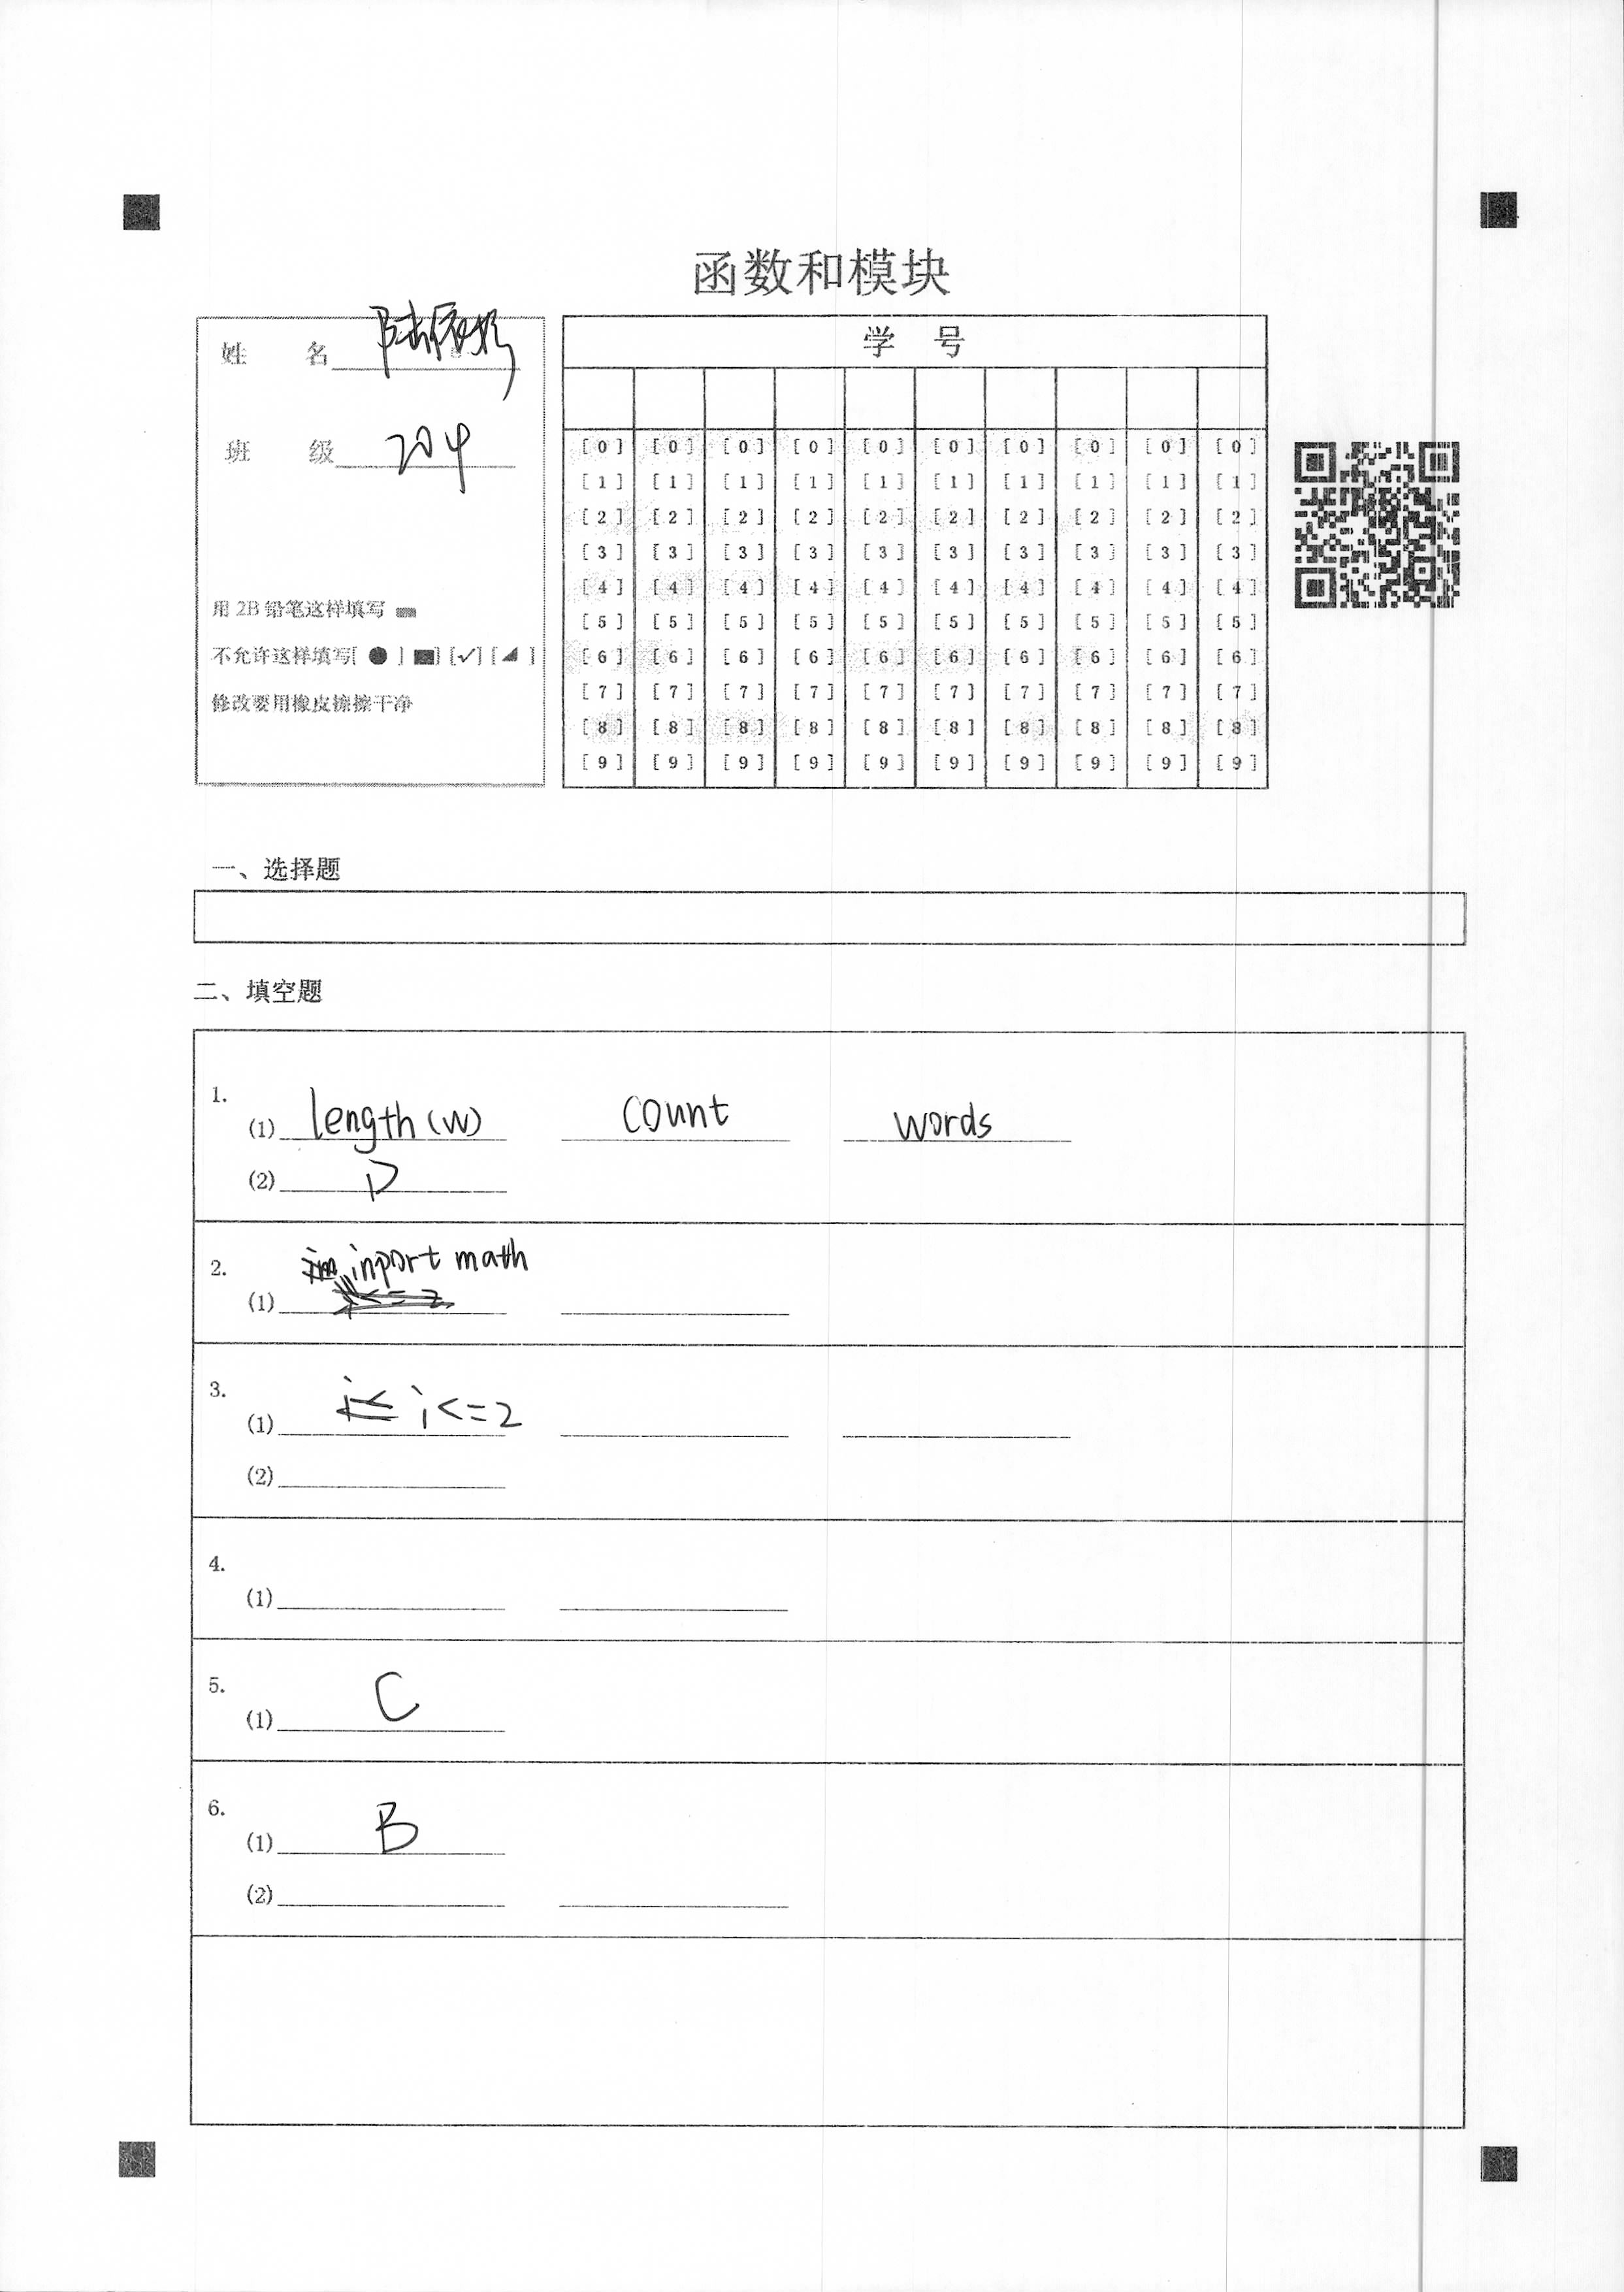 函数和模块
姓 名
班 级 204
用 2B 铅笔这样填写
不允许这样填写[ ● ] [■] [✓] [◢ ]
修改要用橡皮擦擦干净
学 号
[0] [0] [0] [0] [0] [0] [0] [0] [0] [0]
[1] [1] [1] [1] [1] [1] [1] [1] [1] [1]
[2] [2] [2] [2] [2] [2] [2] [2] [2] [2]
[3] [3] [3] [3] [3] [3] [3] [3] [3] [3]
[4] [4] [4] [4] [4] [4] [4] [4] [4] [4]
[5] [5] [5] [5] [5] [5] [5] [5] [5] [5]
[6] [6] [6] [6] [6] [6] [6] [6] [6] [6]
[7] [7] [7] [7] [7] [7] [7] [7] [7] [7]
[8] [8] [8] [8] [8] [8] [8] [8] [8] [8]
[9] [9] [9] [9] [9] [9] [9] [9] [9] [9]
一、选择题
二、填空题
1.
(1) length(w) count words
(2) D
2.
inport math
(1)
3.
(1) i<=2
(2)
4.
(1)
5.
(1) C
6.
(1) B
(2)